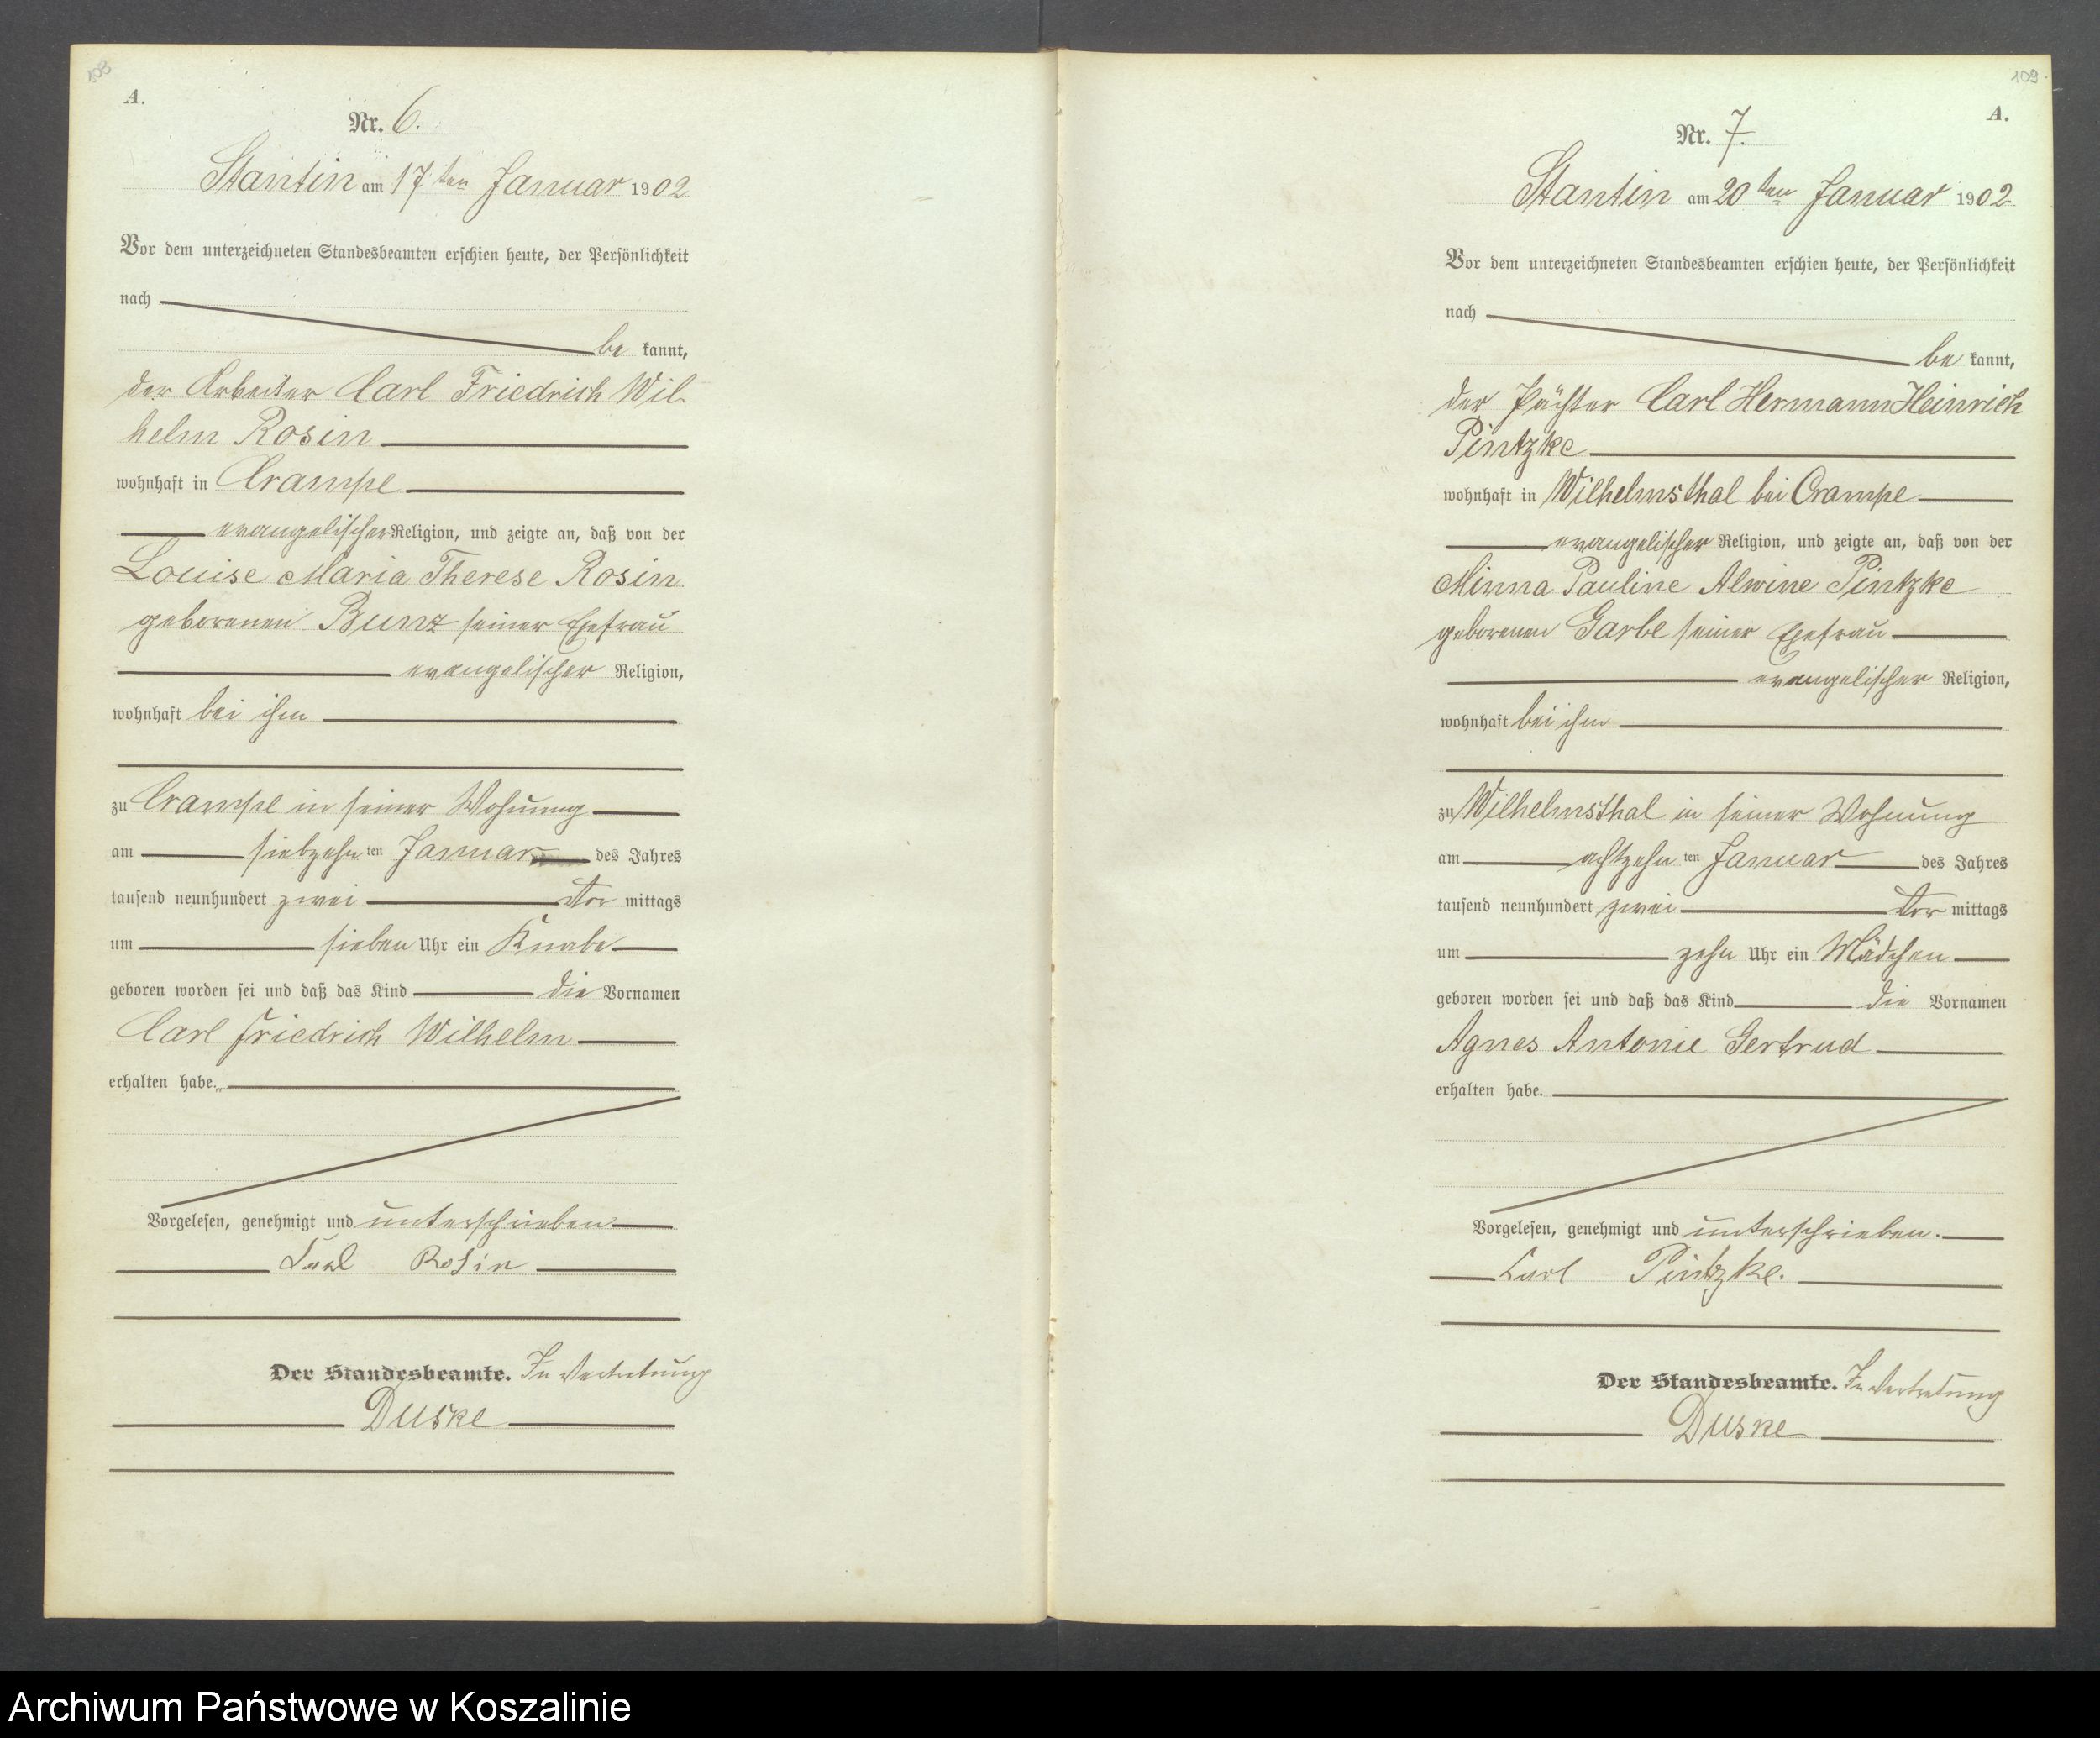 108
A.
Nr. 6.
Stantin am 17ten Januar 1902
Vor dem unterzeichneten Standesbeamten erschien heute, der Persönlichkeit
nach
be kannt,
der Arbeiter Carl Friedrich Wil-
helm Rosin
wohnhaft in Crampe
evangelischer Religion, und zeigte an, daß von der
Louise Maria Therese Rosin
geborenen Bunz seiner Ehefrau
evangelischer Religion,
wohnhaft bei ihm
zu Crampe in seiner Wohnung
am siebzehn ten Januar des Jahres
tausend neunhundert zwei Vor mittags
um sieben Uhr ein Knabe
geboren worden sei und daß das Kind die Vornamen
Carl Friedrich Wilhelm
erhalten habe.
Vorgelesen, genehmigt und unterschrieben
Carl Rosin
Der Standesbeamte. In Vertretung
Duske
109
A.
Nr. 7.
Stantin am 20ten Januar 1902.
Vor dem unterzeichneten Standesbeamten erschien heute, der Persönlichkeit
nach
be kannt,
der Pächter Carl Hermann Heinrich
Pintzke
wohnhaft in Wilhelmsthal bei Crampe
evangelischer Religion, und zeigte an, daß von der
Minna Pauline Alwine Pintzke
geborenen Garbe seiner Ehefrau
evangelischer Religion,
wohnhaft bei ihm
zu Wilhelmsthal in seiner Wohnung
am achtzehn ten Januar des Jahres
tausend neunhundert zwei Vor mittags
um zehn Uhr ein Mädchen
geboren worden sei und daß das Kind die Vornamen
Agnes Antonie Gertrud
erhalten habe.
Vorgelesen, genehmigt und unterschrieben.
Carl Pintzke.
Der Standesbeamte. In Vertretung
Duske
Archiwum Państwowe w Koszalinie